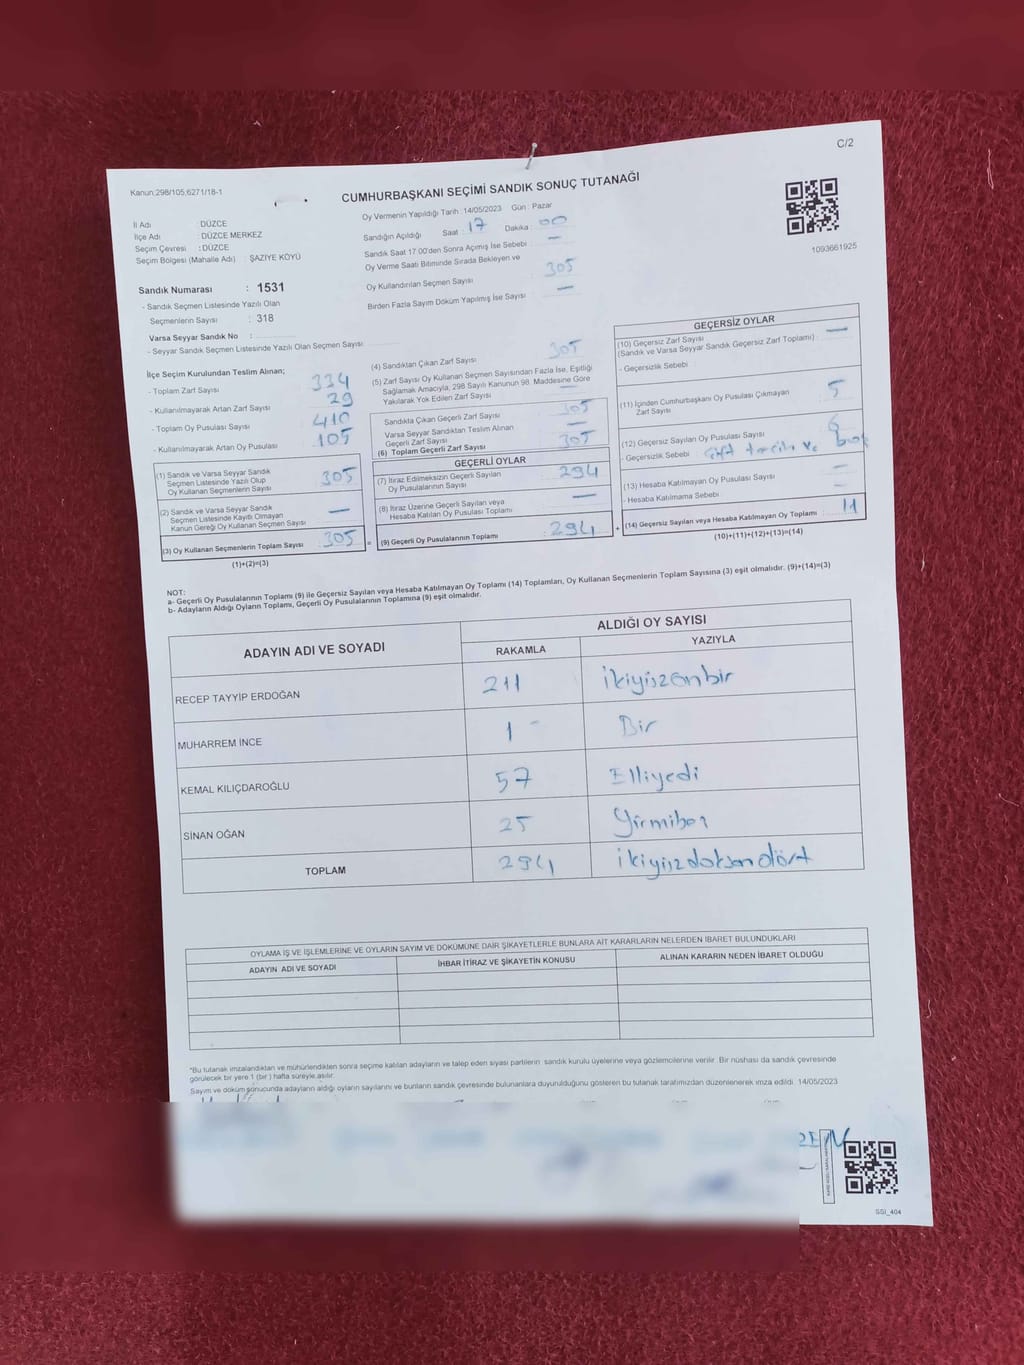 C/2
Kanun;298/105,6271/18-1
CUMHURBAŞKANI SEÇİMİ SANDIK SONUÇ TUTANAĞI
İl Adı : DÜZCE
İlçe Adı : DÜZCE MERKEZ
Seçim Çevresi : DÜZCE
Seçim Bölgesi (Mahalle Adı) : ŞAZİYE KÖYÜ
Sandık Numarası : 1531
- Sandık Seçmen Listesinde Yazılı Olan
Seçmenlerin Sayısı : 318
Varsa Seyyar Sandık No :
- Seyyar Sandık Seçmen Listesinde Yazılı Olan Seçmen Sayısı
Oy Vermenin Yapıldığı Tarih : 14/05/2023 Gün : Pazar
Sandığın Açıldığı Saat : 17 Dakika : 00
Sandık Saat 17.00'den Sonra Açımış İse Sebebi —
Oy Verme Saati Bitiminde Sırada Bekleyen ve
Oy Kullandırılan Seçmen Sayısı 305
Birden Fazla Sayım Döküm Yapılmış İse Sayısı —
1093661925
İlçe Seçim Kurulundan Teslim Alınan;
- Toplam Zarf Sayısı 334
- Kullanılmayarak Artan Zarf Sayısı 29
- Toplam Oy Pusulası Sayısı 410
- Kullanılmayarak Artan Oy Pusulası 105
(1) Sandık ve Varsa Seyyar Sandık
Seçmen Listesinde Yazılı Olup
Oy Kullanan Seçmenlerin Sayısı 305
(2) Sandık ve Varsa Seyyar Sandık
Seçmen Listesinde Kayıtlı Olmayan
Kanun Gereği Oy Kullanan Seçmen Sayısı —
(3) Oy Kullanan Seçmenlerin Toplam Sayısı 305 =
(1)+(2)=(3)
(4) Sandıktan Çıkan Zarf Sayısı 305
(5) Zarf Sayısı Oy Kullanan Seçmen Sayısından Fazla İse, Eşitliği
Sağlamak Amacıyla, 298 Sayılı Kanunun 98. Maddesine Göre
Yakılarak Yok Edilen Zarf Sayısı —
Sandıkta Çıkan Geçerli Zarf Sayısı 305
Varsa Seyyar Sandıktan Teslim Alınan
Geçerli Zarf Sayısı —
(6) Toplam Geçerli Zarf Sayısı 305
GEÇERLİ OYLAR
(7) İtiraz Edilmeksizin Geçerli Sayılan
Oy Pusulalarının Sayısı 294
(8) İtiraz Üzerine Geçerli Sayılan veya
Hesaba Katılan Oy Pusulası Toplamı —
(9) Geçerli Oy Pusulalarının Toplamı : 294 +
GEÇERSİZ OYLAR
(10) Geçersiz Zarf Sayısı
(Sandık ve Varsa Seyyar Sandık Geçersiz Zarf Toplamı) : —
- Geçersizlik Sebebi :
(11) İçinden Cumhurbaşkanı Oy Pusulası Çıkmayan
Zarf Sayısı 5
(12) Geçersiz Sayılan Oy Pusulası Sayısı
- Geçersizlik Sebebi Çift tercih ve boş
(13) Hesaba Katılmayan Oy Pusulası Sayısı —
- Hesaba Katılmama Sebebi —
(14) Geçersiz Sayılan veya Hesaba Katılmayan Oy Toplamı : 11
(10)+(11)+(12)+(13)=(14)
NOT:
a- Geçerli Oy Pusulalarının Toplamı (9) ile Geçersiz Sayılan veya Hesaba Katılmayan Oy Toplamı (14) Toplamları, Oy Kullanan Seçmenlerin Toplam Sayısına (3) eşit olmalıdır. (9)+(14)=(3)
b- Adayların Aldığı Oyların Toplamı, Geçerli Oy Pusulalarının Toplamına (9) eşit olmalıdır.
ADAYIN ADI VE SOYADI
ALDIĞI OY SAYISI
RAKAMLA YAZIYLA
RECEP TAYYİP ERDOĞAN 211 ikiyüzonbir
MUHARREM İNCE 1 Bir
KEMAL KILIÇDAROĞLU 57 Elliyedi
SİNAN OĞAN 25 Yirmibeş
TOPLAM 294 ikiyüzdoksandört
OYLAMA İŞ VE İŞLEMLERİNE VE OYLARIN SAYIM VE DÖKÜMÜNE DAİR ŞİKAYETLERLE BUNLARA AİT KARARLARIN NELERDEN İBARET BULUNDUKLARI
ADAYIN ADI VE SOYADI İHBAR İTİRAZ VE ŞİKAYETİN KONUSU ALINAN KARARIN NEDEN İBARET OLDUĞU
*Bu tutanak imzalandıktan ve mühürlendikten sonra seçime katılan adayların ve talep eden siyasi partilerin sandık kurulu üyelerine veya gözlemcilerine verilir. Bir nüshası da sandık çevresinde
görülecek bir yere 1 (bir) hafta süreyle asılır.
Sayım ve döküm sonucunda adayların aldığı oyların sayılarını ve bunların sandık çevresinde bulunanlara duyurulduğunu gösteren bu tutanak tarafımızdan düzenlenerek imza edildi. 14/05/2023
SSI_404